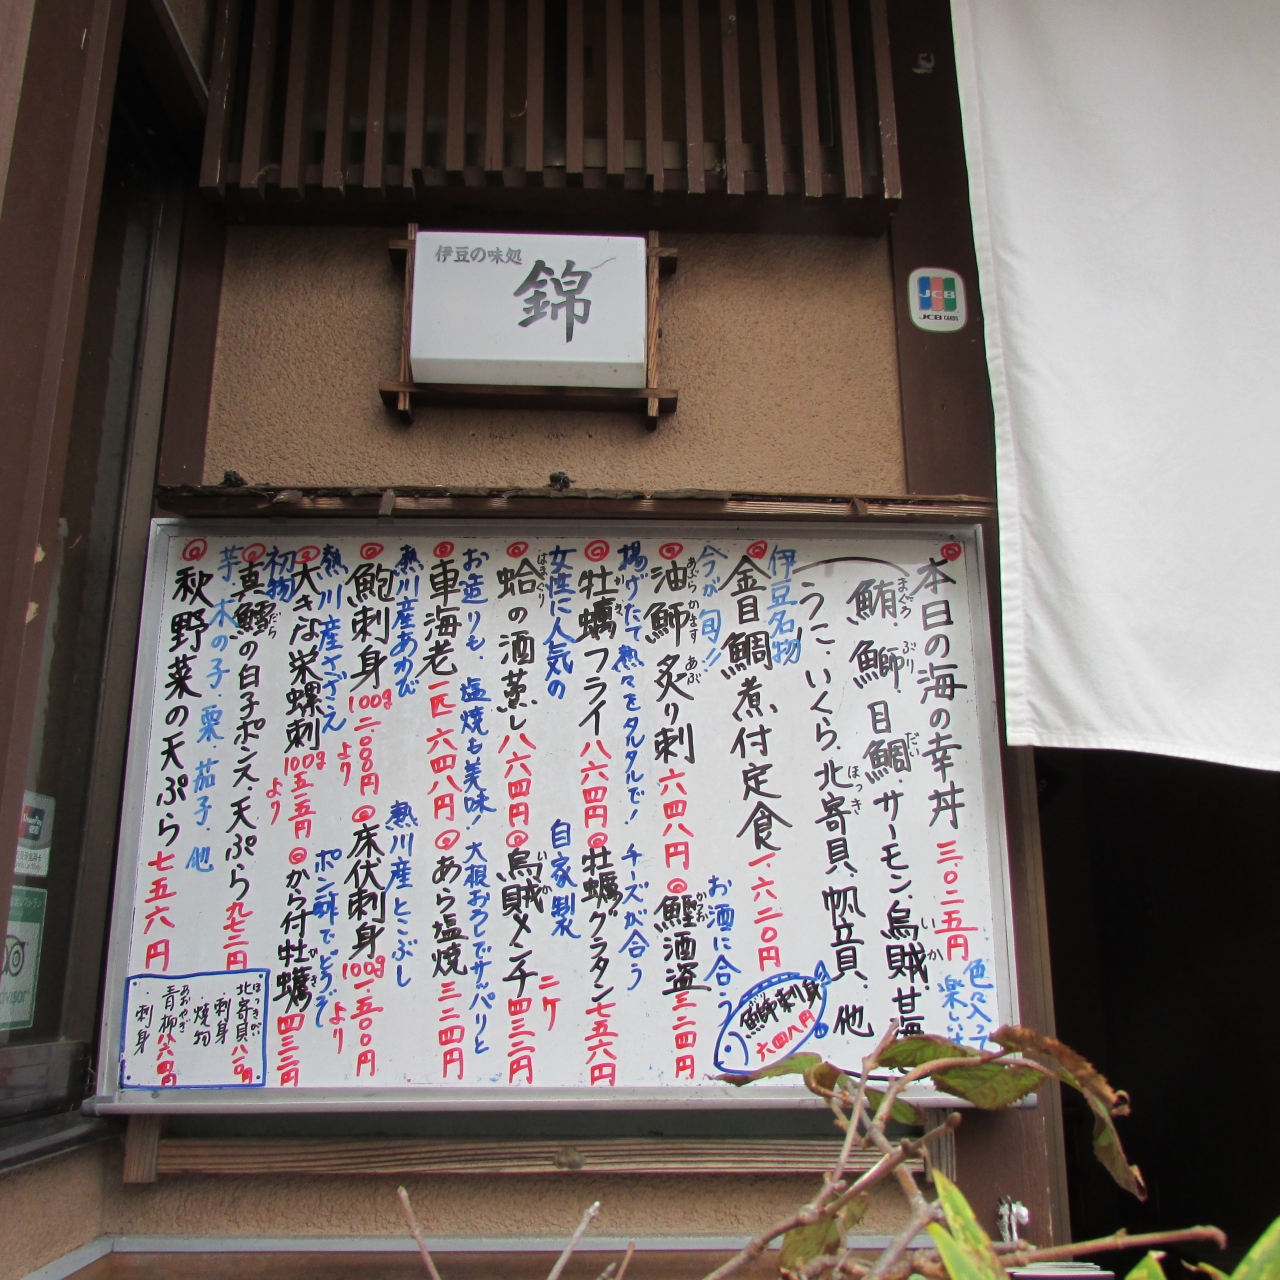 伊豆の味処
錦
JCB
JCB CARDS
本日の海の幸丼 三、〇二五円
鮪、鰤、目鯛、サーモン、烏賊、甘海
うに、いくら、北寄貝、帆立貝、他
伊豆名物
金目鯛煮付定食 一、六二〇円
今が旬!!
お酒に合う
油魳炙り刺 六四八円
鰹酒盗 三二四円
鰤刺身 六四八円
揚げたて熱々をタルタルで!
チーズが合う
牡蠣フライ 八六四円
牡蠣グラタン 七五六円
女性に人気の
自家製
蛤の酒蒸し 八六四円
烏賊メンチ 二ケ 四三二円
お造りも、塩焼も美味!
大根おろしでサッパリと
車海老 一匹 六四八円
あら塩焼 三二四円
熱川産あわび
熱川産とこぶし
鮑刺身 100g 二、〇〇〇円 より
床伏刺身 100g 一、五〇〇円 より
熱川産さざえ
ポン酢でどうぞ
大きな栄螺刺 100g 五五円 より
から付牡蠣 四三二円
初物
真鱈の白子ポンズ・天ぷら 九七二円
芋、木の子、栗、茄子、他
秋野菜の天ぷら 七五六円
北寄貝
・刺身
・焼物
青柳 八六四円
・刺身